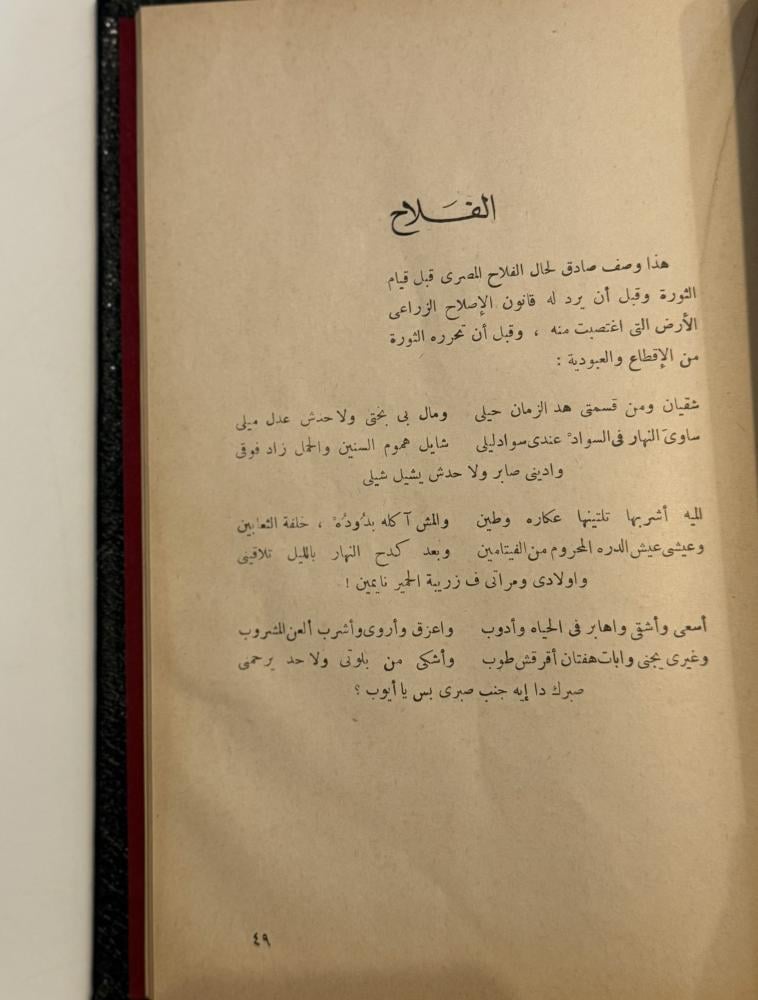 الفلاح
هذا وصف صادق لحال الفلاح المصرى قبل قيام
الثورة وقبل أن يرد له قانون الإصلاح الزراعى
الأرض التى اغتصبت منه ، وقبل أن تحرره الثورة
من الإقطاع والعبودية :
شقيان ومن قسمتى هد الزمان حيلى ومال بى بختى ولاحدش عدل ميلى
ساوىَ النهار فى السوادْ عندى سوادليلى شايل هموم السنين والحمل زاد فوقى
وادينى صابر ولا حدش يشيل شيلى
الميه أشربها تلتينها عكاره وطين والمش آكله بدُودُهْ ، خلفة الثعابين
وعيشى عيش الدره المحروم من الفيتامين وبعد كدح النهار بالليل تلاقينى
واولادى ومراتى ف زريبة الحمير نايمين !
أسعى وأشقى واهابر فى الحياه وأدوب واعزق وأروى وأشرب ألعن المشروب
وغيرى يجنى وابات هفتان أقرقش طوب وأشكى من بلوتى ولاحد يرحمنى
صبرك دا إيه جنب صبرى بس يا أيوب ؟
٤٩